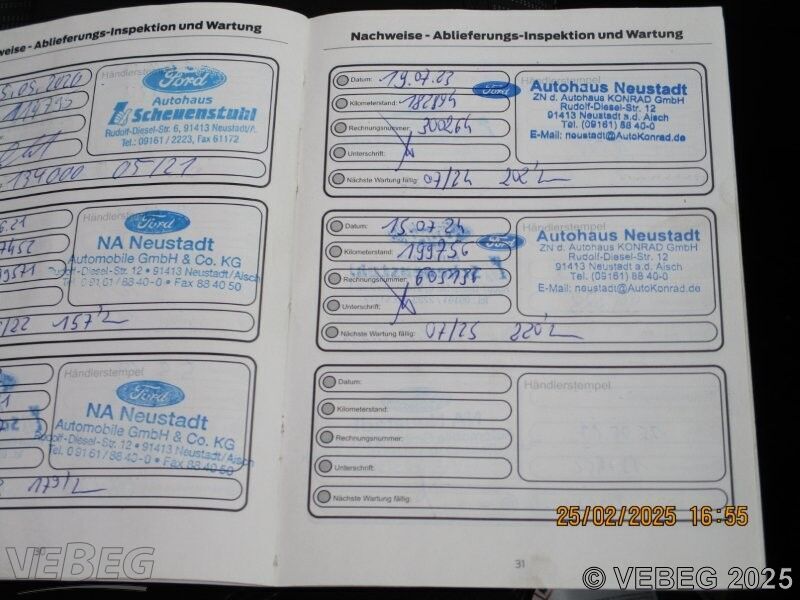 weise - Ablieferungs-Inspektion und Wartung
Händlerstempel
Ford
Autohaus
Scheuenstuhl
Rudolf-Diesel-Str. 6, 91413 Neustadt/A.
Tel.: 09161 / 2223, Fax 61172
134000 05/21
6.21
Händlerstempel
Ford
NA Neustadt
Automobile GmbH & Co. KG
Rudolf-Diesel-Str. 12 • 91413 Neustadt/Aisch
Tel. 0 91 61 / 88 40-0 • Fax 88 40 50
/22 157'
Händlerstempel
Ford
NA Neustadt
Automobile GmbH & Co. KG
Rudolf-Diesel-Str. 12 • 91413 Neustadt/Aisch
Tel. 0 91 61 / 88 40-0 • Fax 88 40 50
179'
30
Nachweise - Ablieferungs-Inspektion und Wartung
Datum: 19.07.23
Kilometerstand: 182894
Rechnungsnummer: 300264
Unterschrift:
Nächste Wartung fällig: 07/24 202'
Händlerstempel
Ford
Autohaus Neustadt
ZN d. Autohaus KONRAD GmbH
Rudolf-Diesel-Str. 12
91413 Neustadt a.d. Aisch
Tel. (09161) 88 40-0
E-Mail: neustadt@AutoKonrad.de
Datum: 15.07.24
Kilometerstand: 199756
Rechnungsnummer:
Unterschrift:
Nächste Wartung fällig: 07/25 220'
Händlerstempel
Ford
Autohaus Neustadt
ZN d. Autohaus KONRAD GmbH
Rudolf-Diesel-Str. 12
91413 Neustadt a.d. Aisch
Tel. (09161) 88 40-0
E-Mail: neustadt@AutoKonrad.de
Datum:
Kilometerstand:
Rechnungsnummer:
Unterschrift:
Nächste Wartung fällig:
Händlerstempel
31
25/02/2025 16:55
VEBEG
© VEBEG 2025